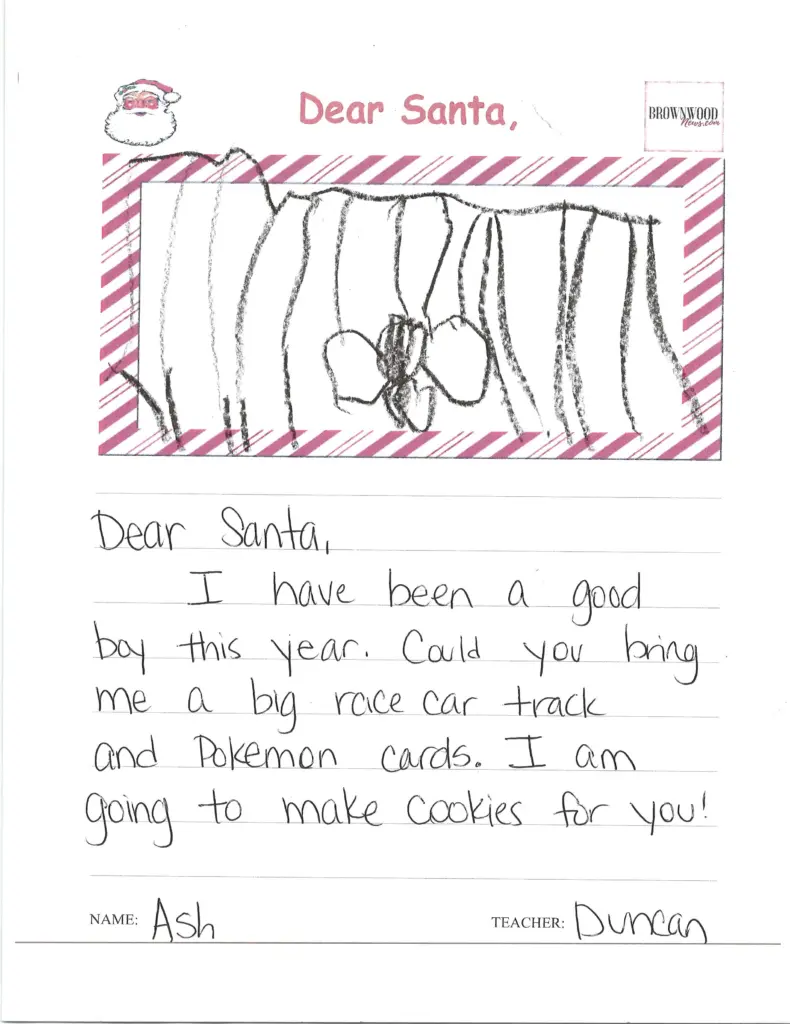 Dear Santa,
BROWNWOOD
News.com
Dear Santa,
I have been a good
boy this year. Could you bring
me a big race car track
and Pokemon cards. I am
going to make cookies for you!
NAME: Ash TEACHER: Duncan